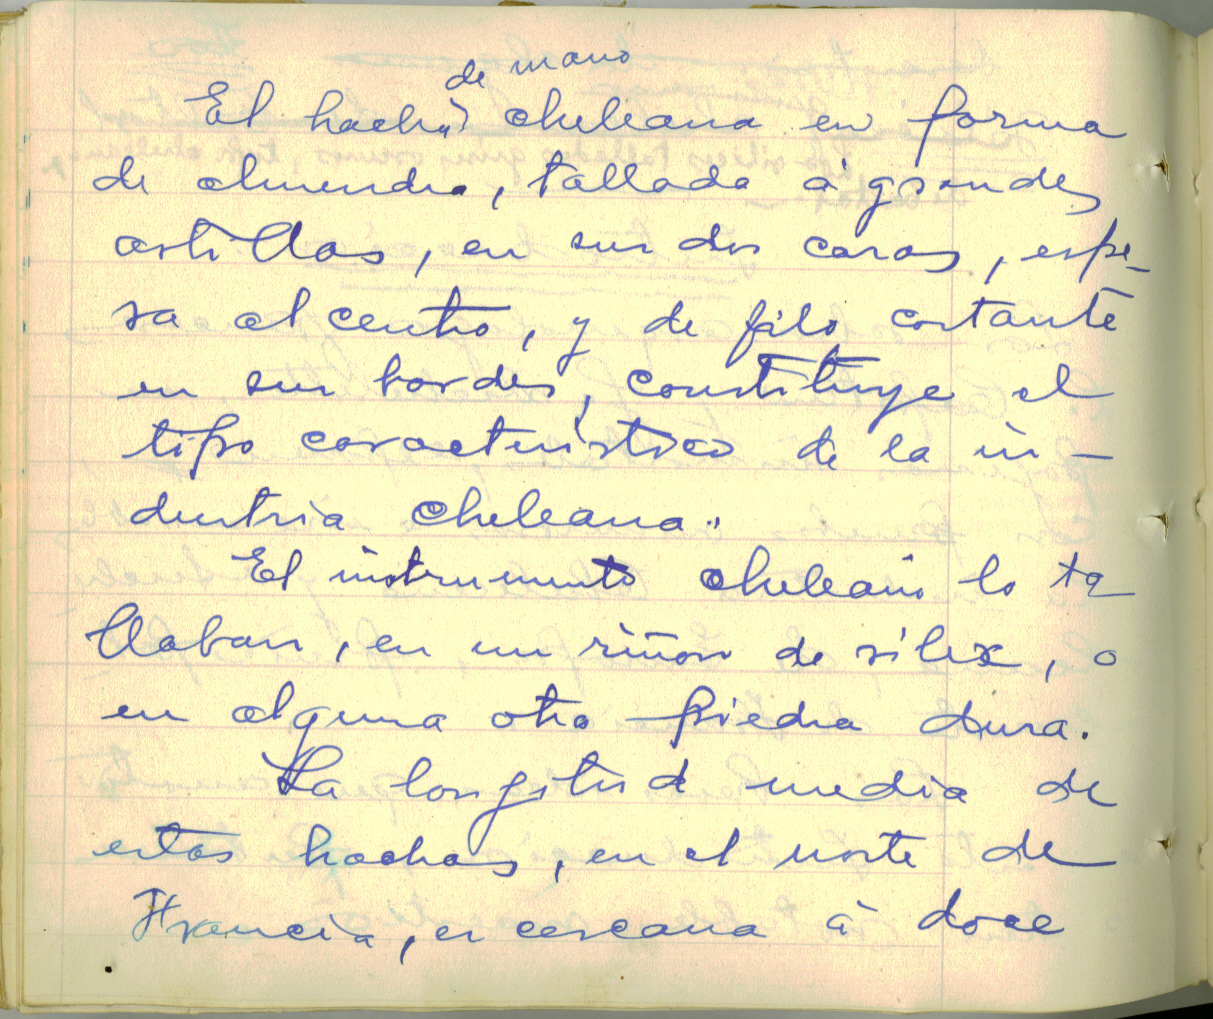 de mano
El hacha cheleana en forma
de almendra, tallada à grandes
astillas, en sus dos caras, espe-
sa al centro, y de filo cortante
en sus bordes, constituye el
tipo característico de la in-
dustria cheleana.
El instrumento cheleano lo ta
llaban, en un riñon de silex, o
en alguna otra piedra dura.
La longitud media de
estas hachas, en el norte de
Francia, es cercana à doce